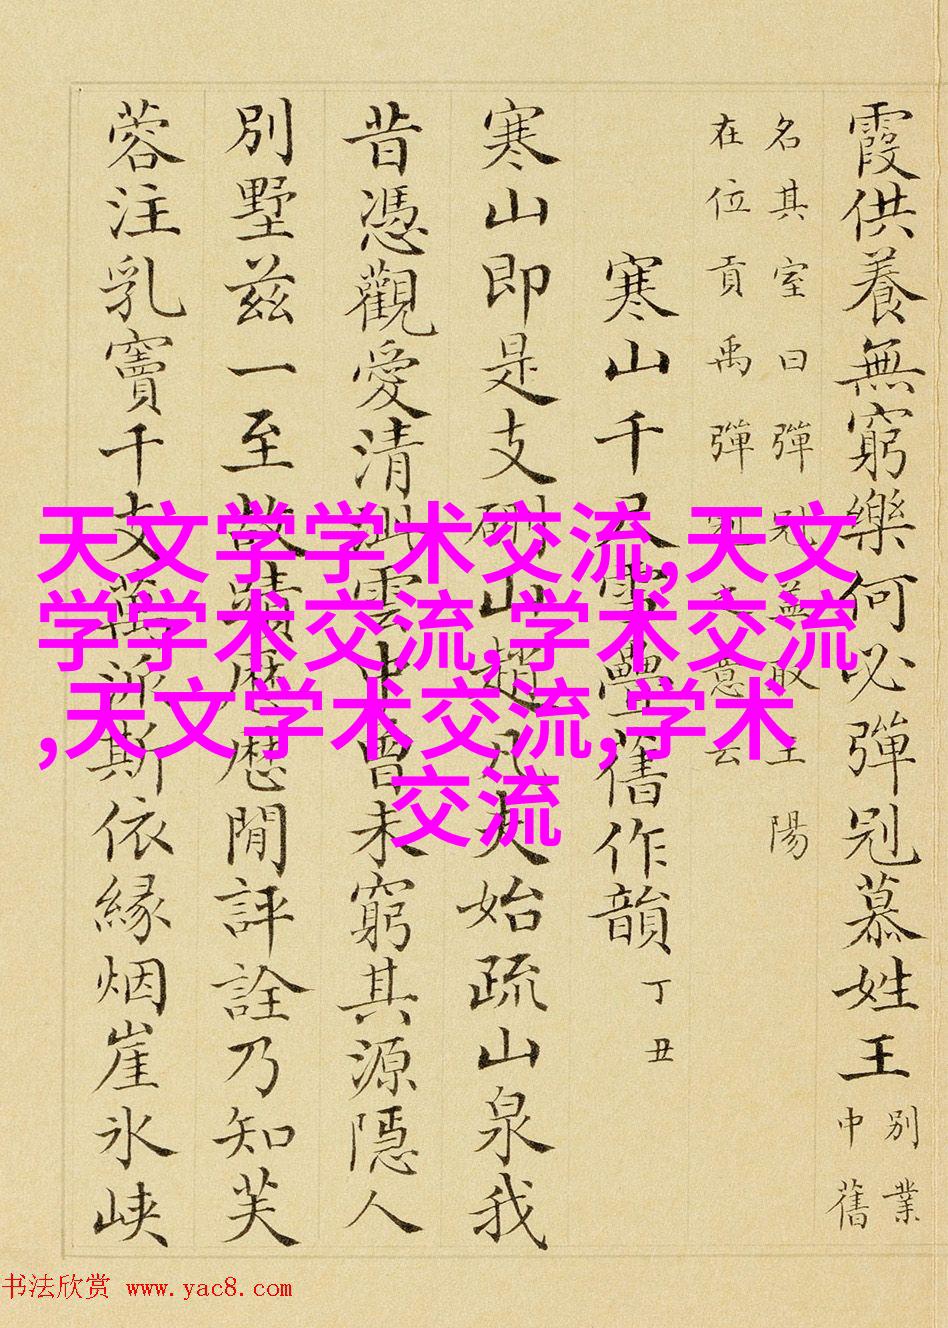 霞供養無窮樂何必彈冠慕姓王
別業
中舊
名其室曰彈冠蓋取王陽
在位貢禹彈冠之意云
寒山千尺雪疊舊作韻
丁丑
寒山即是支硎山趙凡夫始疏山泉我
昔憑觀愛清泚雲中曾未窮其源隱人
別墅茲一至故蹟歷歷閒評詮乃知芙
蓉注乳竇千支萬派斯依緣烟崖氷峽
天文学学术交流,天文
学学术交流,学术交流
,天文学术交流,学术
交流
书法欣赏 www.yac8.com